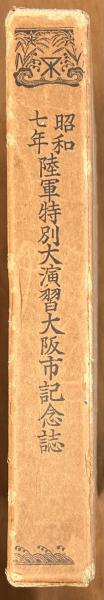 昭和七年陸軍特別大演習大阪市記念誌